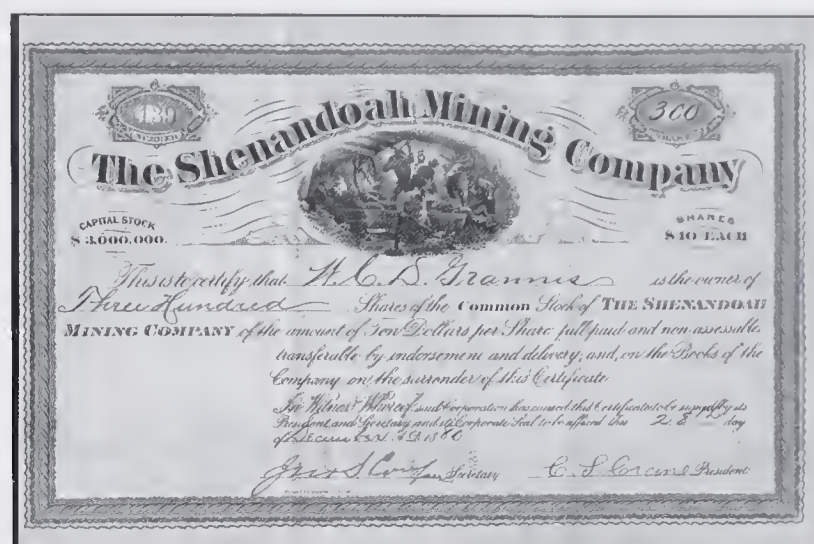 NUMBER
300
SHARES
The Shenandoah Mining Company
CAPITAL STOCK
$3,000,000.
SHARES
$10 EACH
This is to certify that W. C. D. Grannis is the owner of
Three Hundred Shares of the Common Stock of THE SHENANDOAH
MINING COMPANY of the amount of Ten Dollars per Share full paid and non-assessable,
transferable by indorsement and delivery, and, on the Books of the
Company on the surrender of this Certificate.
In Witness Whereof, said Corporation has caused this Certificate to be signed by its
President and Secretary and its Corporate Seal to be affixed this 28 day
of December A.D. 1880
Secretary
C. S. Crane President